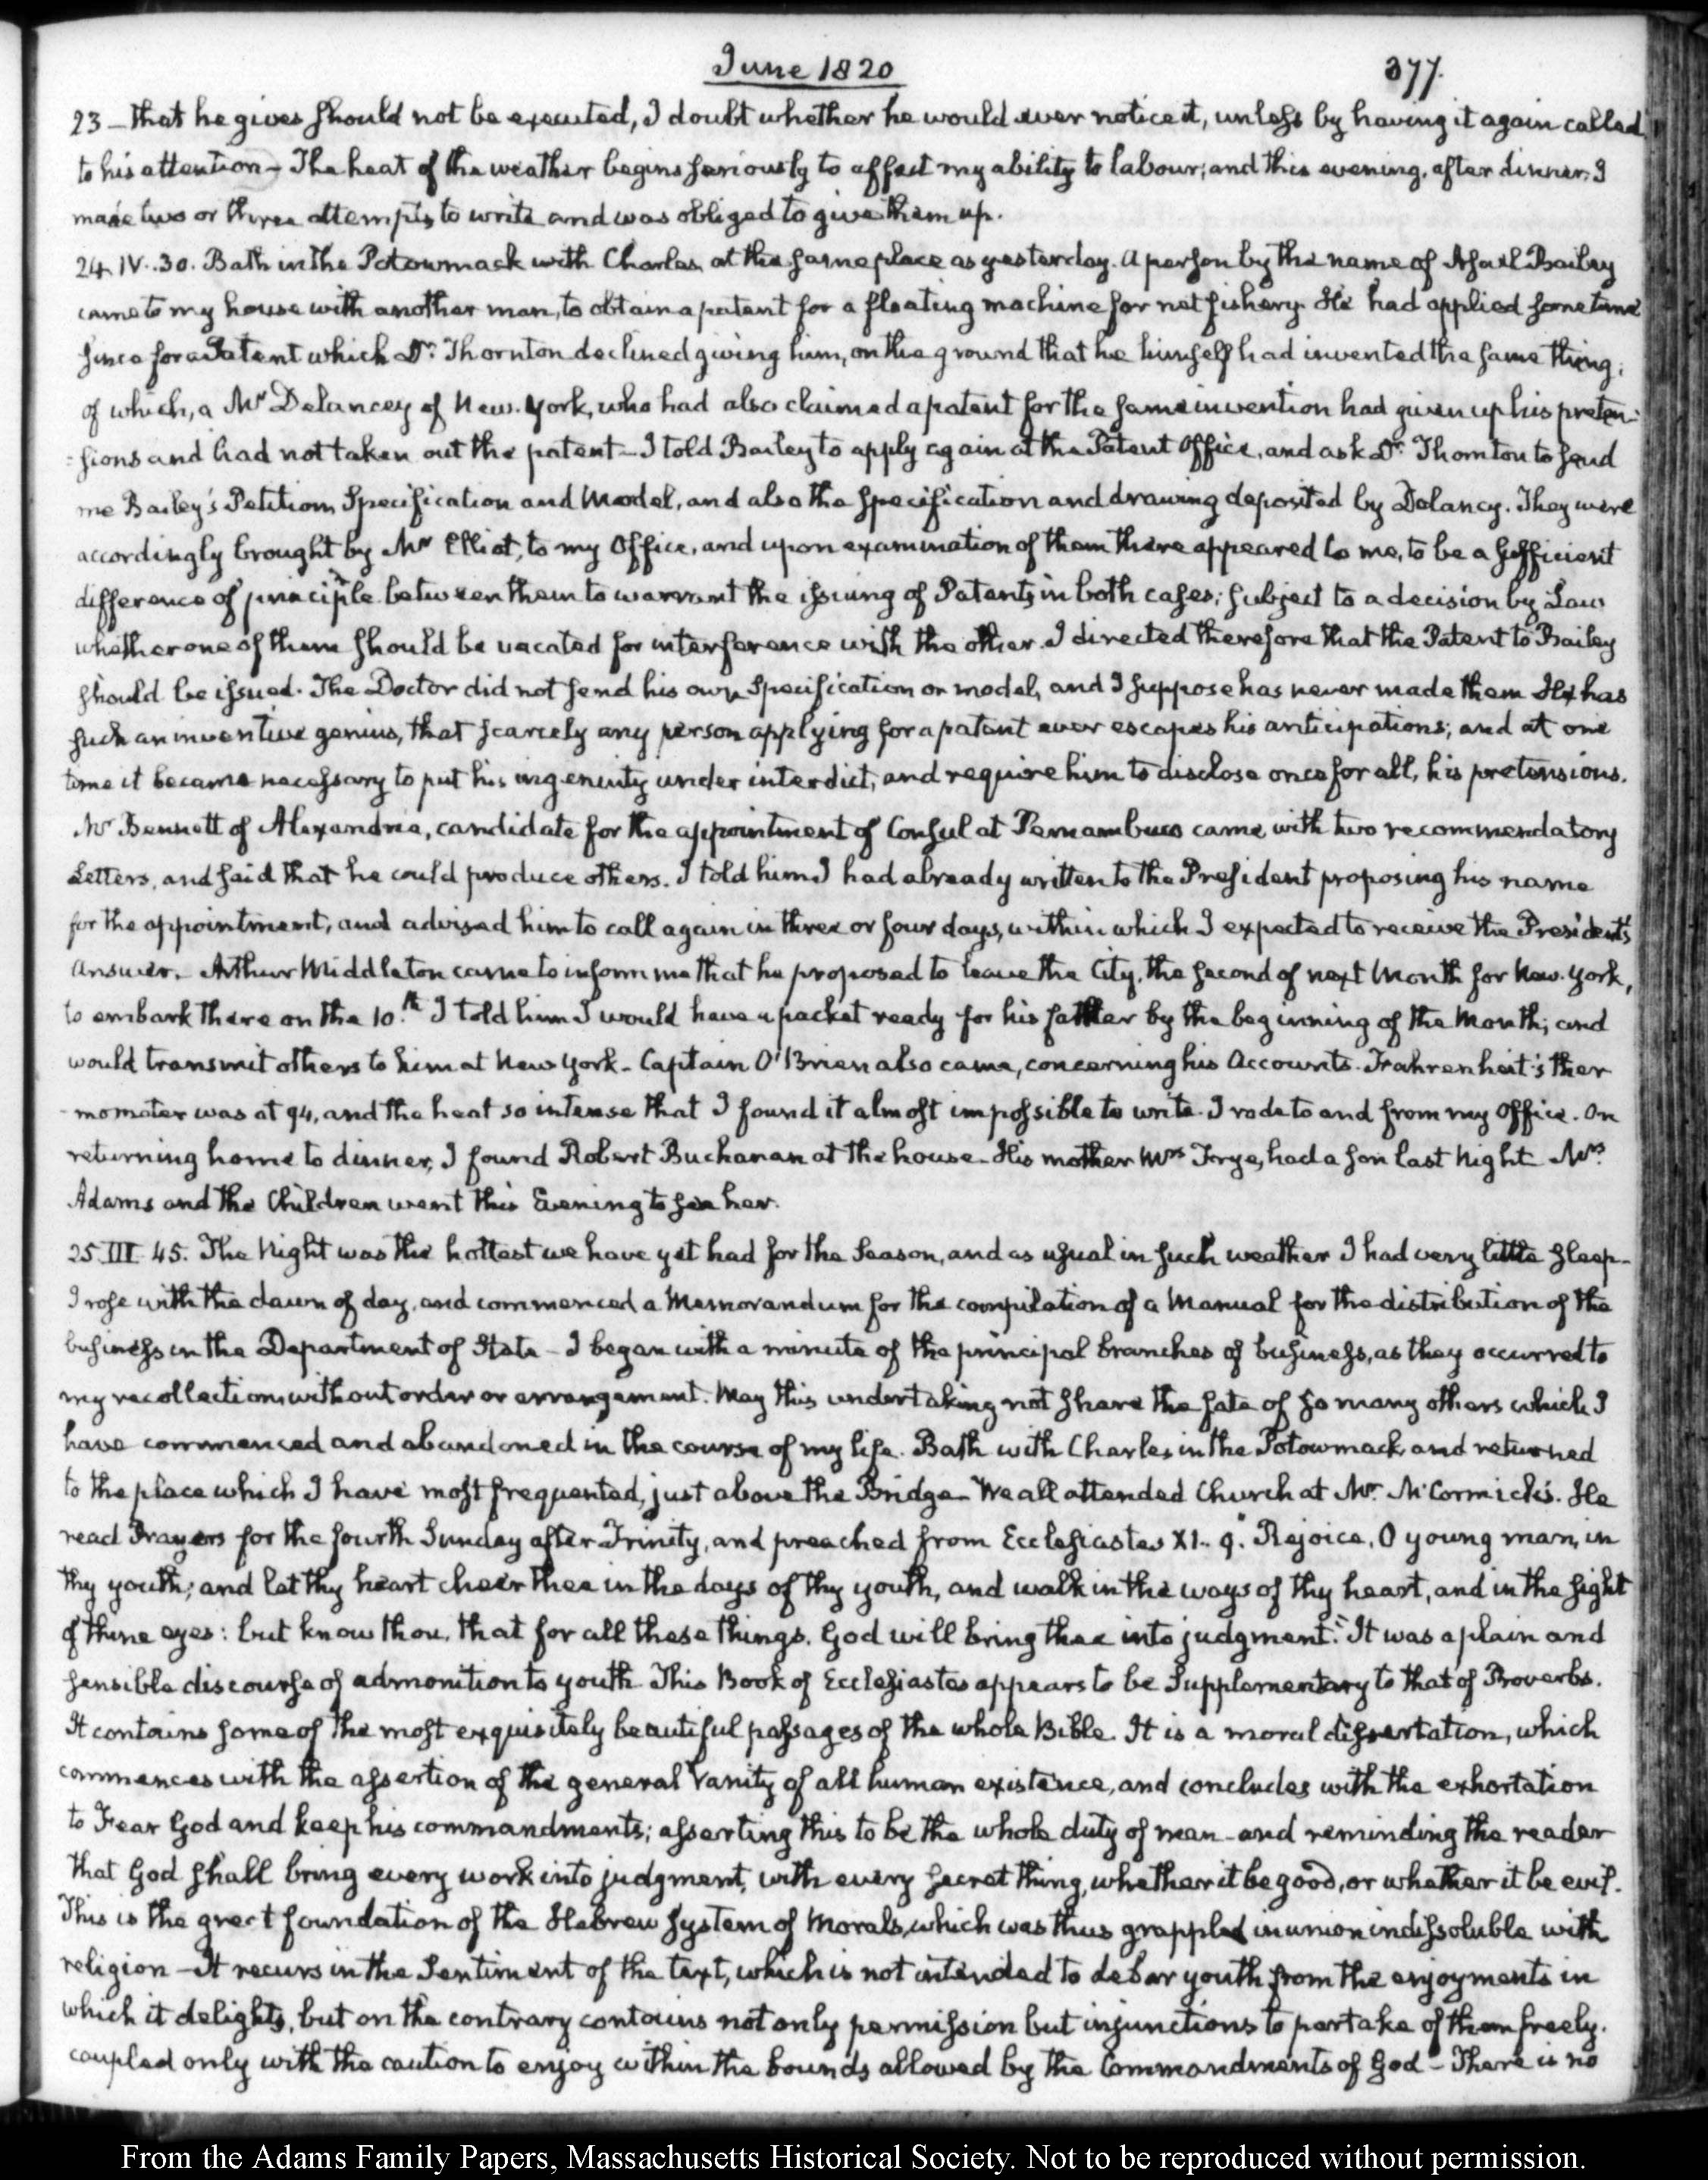 June 1820
377.
23 – that he gives should not be executed, I doubt whether he would ever notice it, unless by having it again called
to his attention – The heat of the weather begins seriously to affect my ability to labour; and this evening, after dinner, I
made two or three attempts to write and was obliged to give them up.
24. IV..30. Bath in the Potowmack with Charles, at the same place as yesterday. A person by the name of Bailey
came to my house with another man, to obtain a patent for a floating machine for net fishery. He had applied some time
since for a Patent which Dr. Thornton declined giving him, on the ground that he himself had invented the same thing;
of which, a Mr Delancey of New-York, who had also claimed a patent for the same invention had given up his preten-
=sions and had not taken out the patent – I told Bailey to apply again at the Patent Office, and ask Dr. Thornton to send
me Bailey's Petition, Specification and Model, and also the specification and drawing deposited by Delancy. They were
accordingly brought by Mr Elliot, to my Office, and upon examination of them there appeared to me, to be a sufficient
difference of principle between them to warrant the issuing of Patents in both cases; subject to a decision by Law
whether one of them should be vacated for interference with the other. I directed therefore that the Patent to Bailey
should be issued. The Doctor did not send his own specification or model, and I suppose has never made them. He has
such an inventive genius, that scarcely any person applying for a patent ever escapes his anticipations; and at one
time it became necessary to put his ingenuity under interdict, and require him to disclose once for all, his pretensions.
Mr Bennett of Alexandria, candidate for the appointment of Consul at Pernambuco came with two recommendatory
Letters, and said that he could produce others. I told him I had already written to the President proposing his name
for the appointment, and advised him to call again in three or four days, within which I expected to receive the President's
answer. Arthur Middleton came to inform me that he proposed to leave the City, the second of next Month for New-York,
to embark there on the 10.th I told him I would have a packet ready for his father by the beginning of the Month; and
would transmit others to him at New York – Captain O'Brien also came, concerning his Accounts. Fahrenheit's ther
-mometer was at 94, and the heat so intense that I found it almost impossible to write. I rode to and from my Office. On
returning home to dinner, I found Robert Buchanan at the house – His mother Mrs Frye, had a son last Night. Mrs.
Adams and the Children went this Evening to see her.
25. III. 45. The Night was the hottest we have yet had for the Season, and as usual in such weather I had very little sleep –
I rose with the dawn of day, and commenced a Memorandum for the compilation of a Manual for the distribution of the
business in the Department of State – I began with a minute of the principal branches of business, as they occurred to
my recollection, without order or arrangement. May this undertaking not share the fate of so many others which I
have commenced and abandoned in the course of my life. Bath with Charles in the Potowmack, and returned
to the place which I have most frequented, just above the Bridge – We all attended Church at Mr. McCormick's. He
read Prayers for the fourth Sunday after Trinity, and preached from Ecclesiastes XI.. 9. "Rejoice, O young man, in
thy youth; and let thy heart cheer thee in the days of thy youth, and walk in the ways of thy heart, and in the sight
of thine eyes: but know thou, that for all these things, God will bring thee into judgment." It was a plain and
sensible discourse of admonition to youth. This Book of Ecclesiastes appears to be Supplementary to that of Proverbs.
It contains some of the most exquisitely beautiful passages of the whole Bible. It is a moral dissertation, which
commences with the assertion of the general Vanity of all human existence, and concludes with the exhortation
to Fear God and keep his commandments; asserting this to be the whole duty of man – and reminding the reader
that God shall bring every work into judgment, with every secret thing, whether it be good, or whether it be evil.
This is the great foundation of the Hebrew system of Morals, which was thus grappled in union indissoluble with
religion – It recurs in the Sentiment of the text, which is not intended to debar youth from the enjoyments in
which it delights, but on the contrary contains not only permission but injunctions to partake of them freely.
coupled only with the caution to enjoy within the bounds allowed by the Commandments of God – There is no
From the Adams Family Papers, Massachusetts Historical Society. Not to be reproduced without permission.